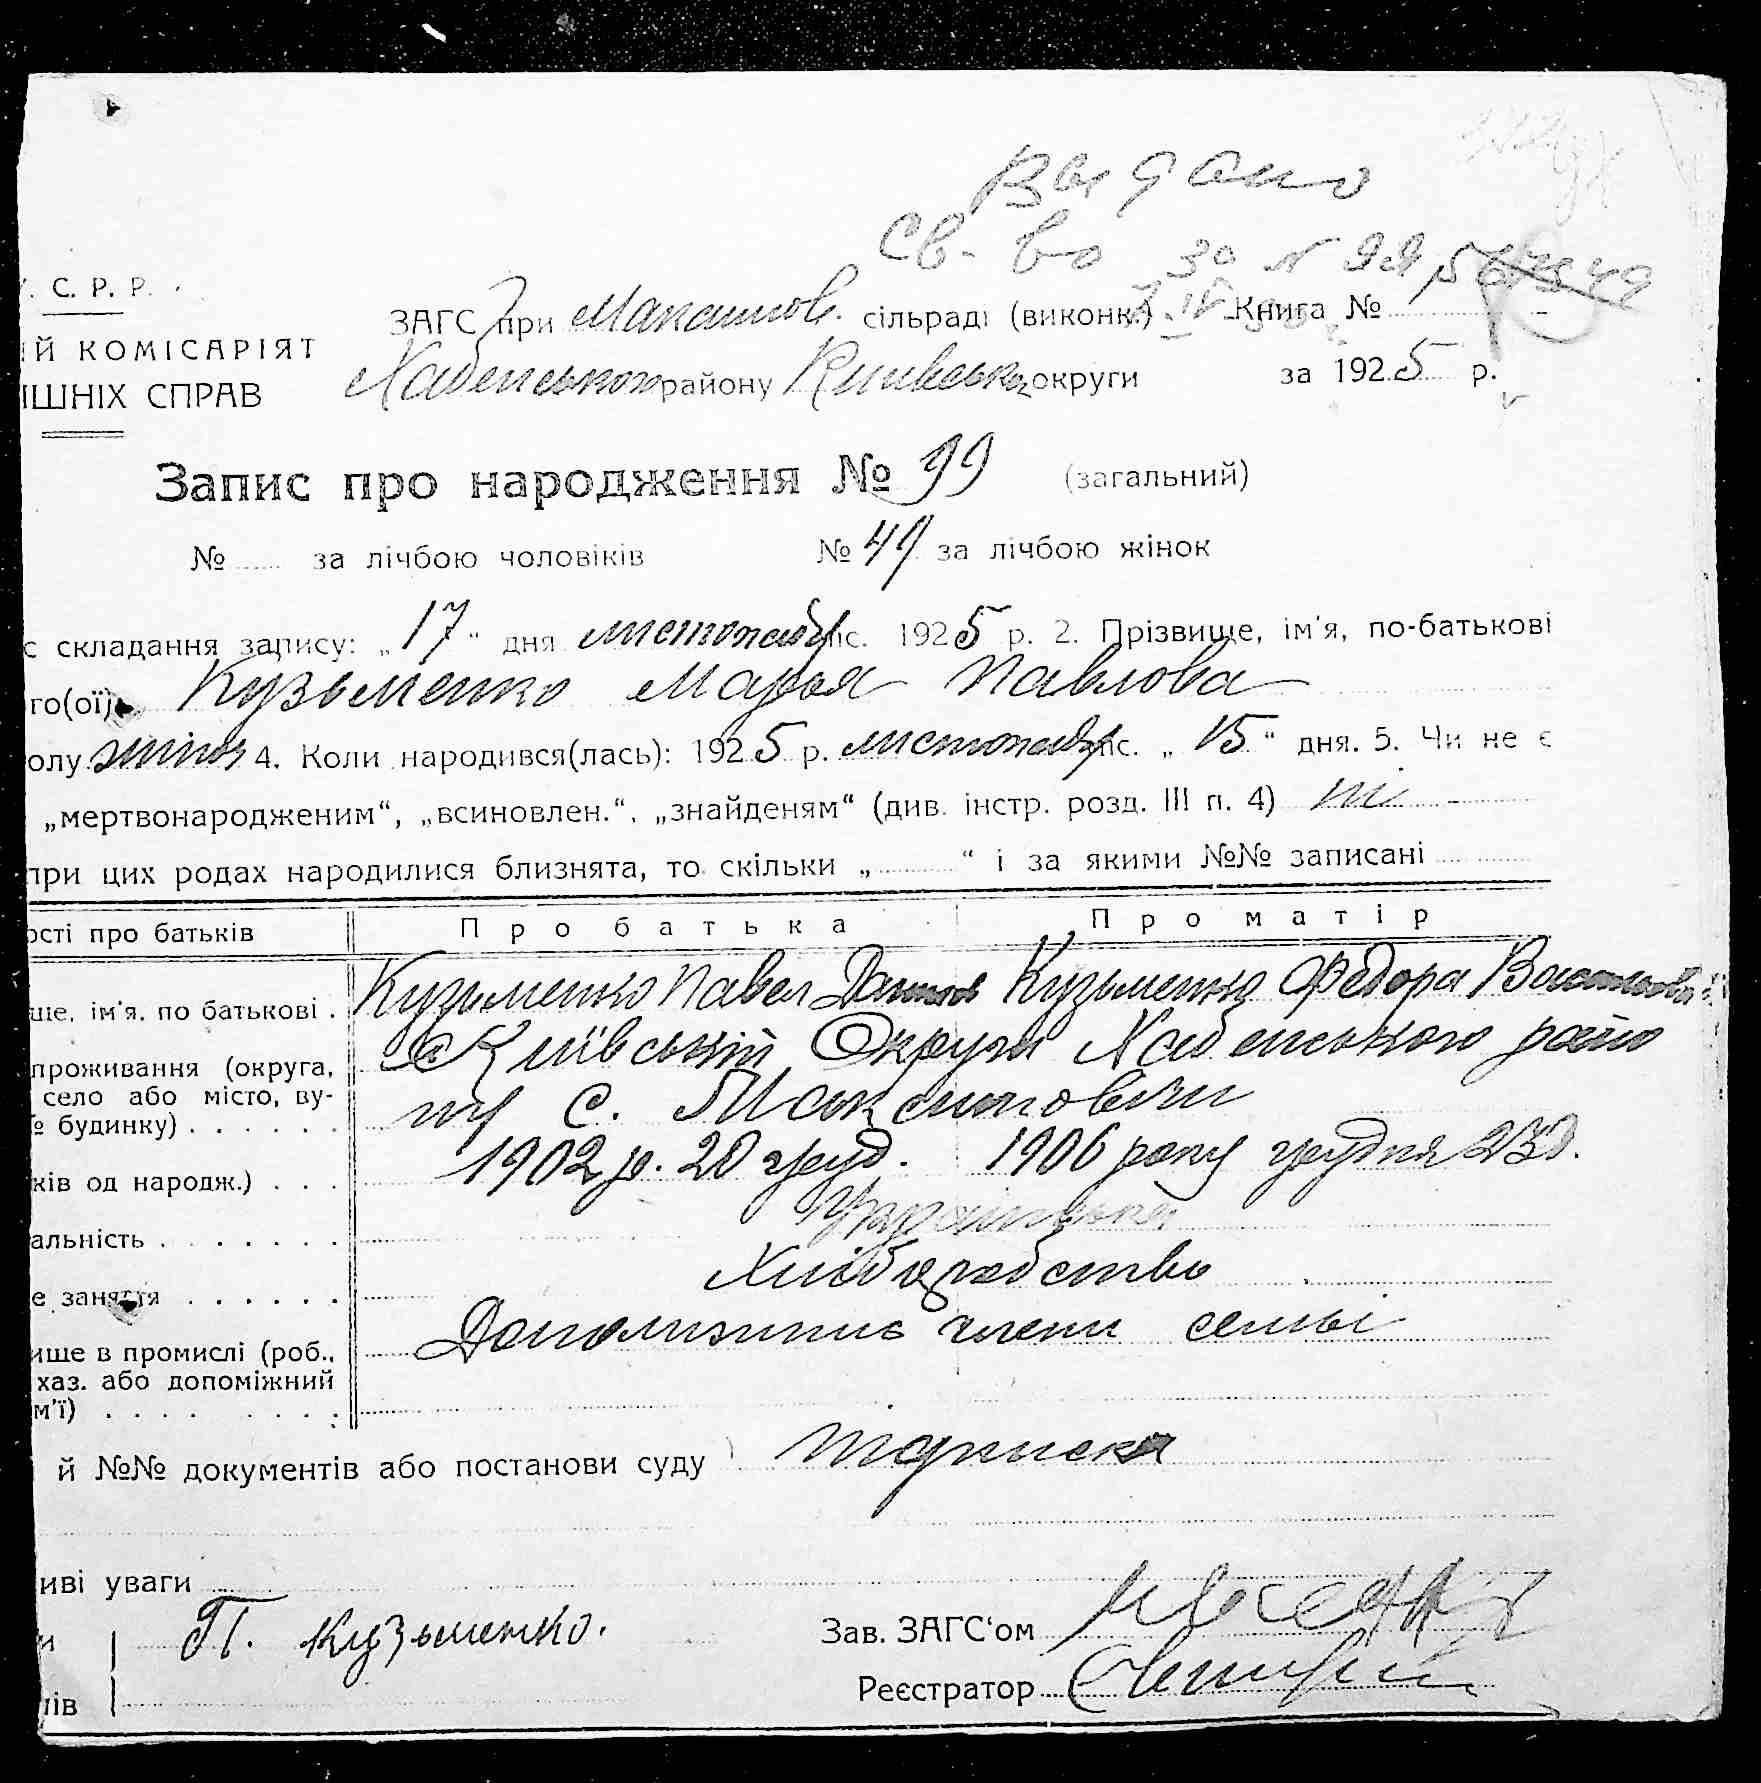 Выдано
Св-во за №
. С. Р. Р.
ЗАГС при Максимов. сільраді (виконк.) Книга №
ІЙ КОМІСАРІЯТ
Хабенського району Київської округи за 1925 р.
ІШНІХ СПРАВ
Запис про народження № 99 (загальний)
№ за лічбою чоловіків № 49 за лічбою жінок
с складання запису: „17“ дня листопаду міс. 1925 р. 2. Прізвище, ім'я, по-батькові
го(ої) Кузьменко Марья Павлова
олу жіноч 4. Коли народився(лась): 1925 р. листопаду міс. „15“ дня. 5. Чи не є
„мертвонародженим“, „всиновлен.“, „знайденям“ (див. інстр. розд. III п. 4) ні
при цих родах народилися близнята, то скільки „ “ і за якими №№ записані
ості про батьків Про батька Про матір
ще, ім'я, по батькові . Кузьменко Павел Кузьменко Федора Васильова
проживання (округа, Київській Округи Хабенського райо
село або місто, ву- ну с. Максимовичи
№ будинку) . . . . . .
ків од народж.) . . . 1902 р. 20 груд. 1906 року грудня 23 д.
альність . . . . . . . Українська
е заняття . . . . . . Хліборобство
ище в промислі (роб., члени семьі
хаз. або допоміжний
м'ї) . . . . . . . . .
й №№ документів або постанови суду підписка
иві уваги
и П. Кузьменко. Зав. ЗАГС'ом
ів Реєстратор